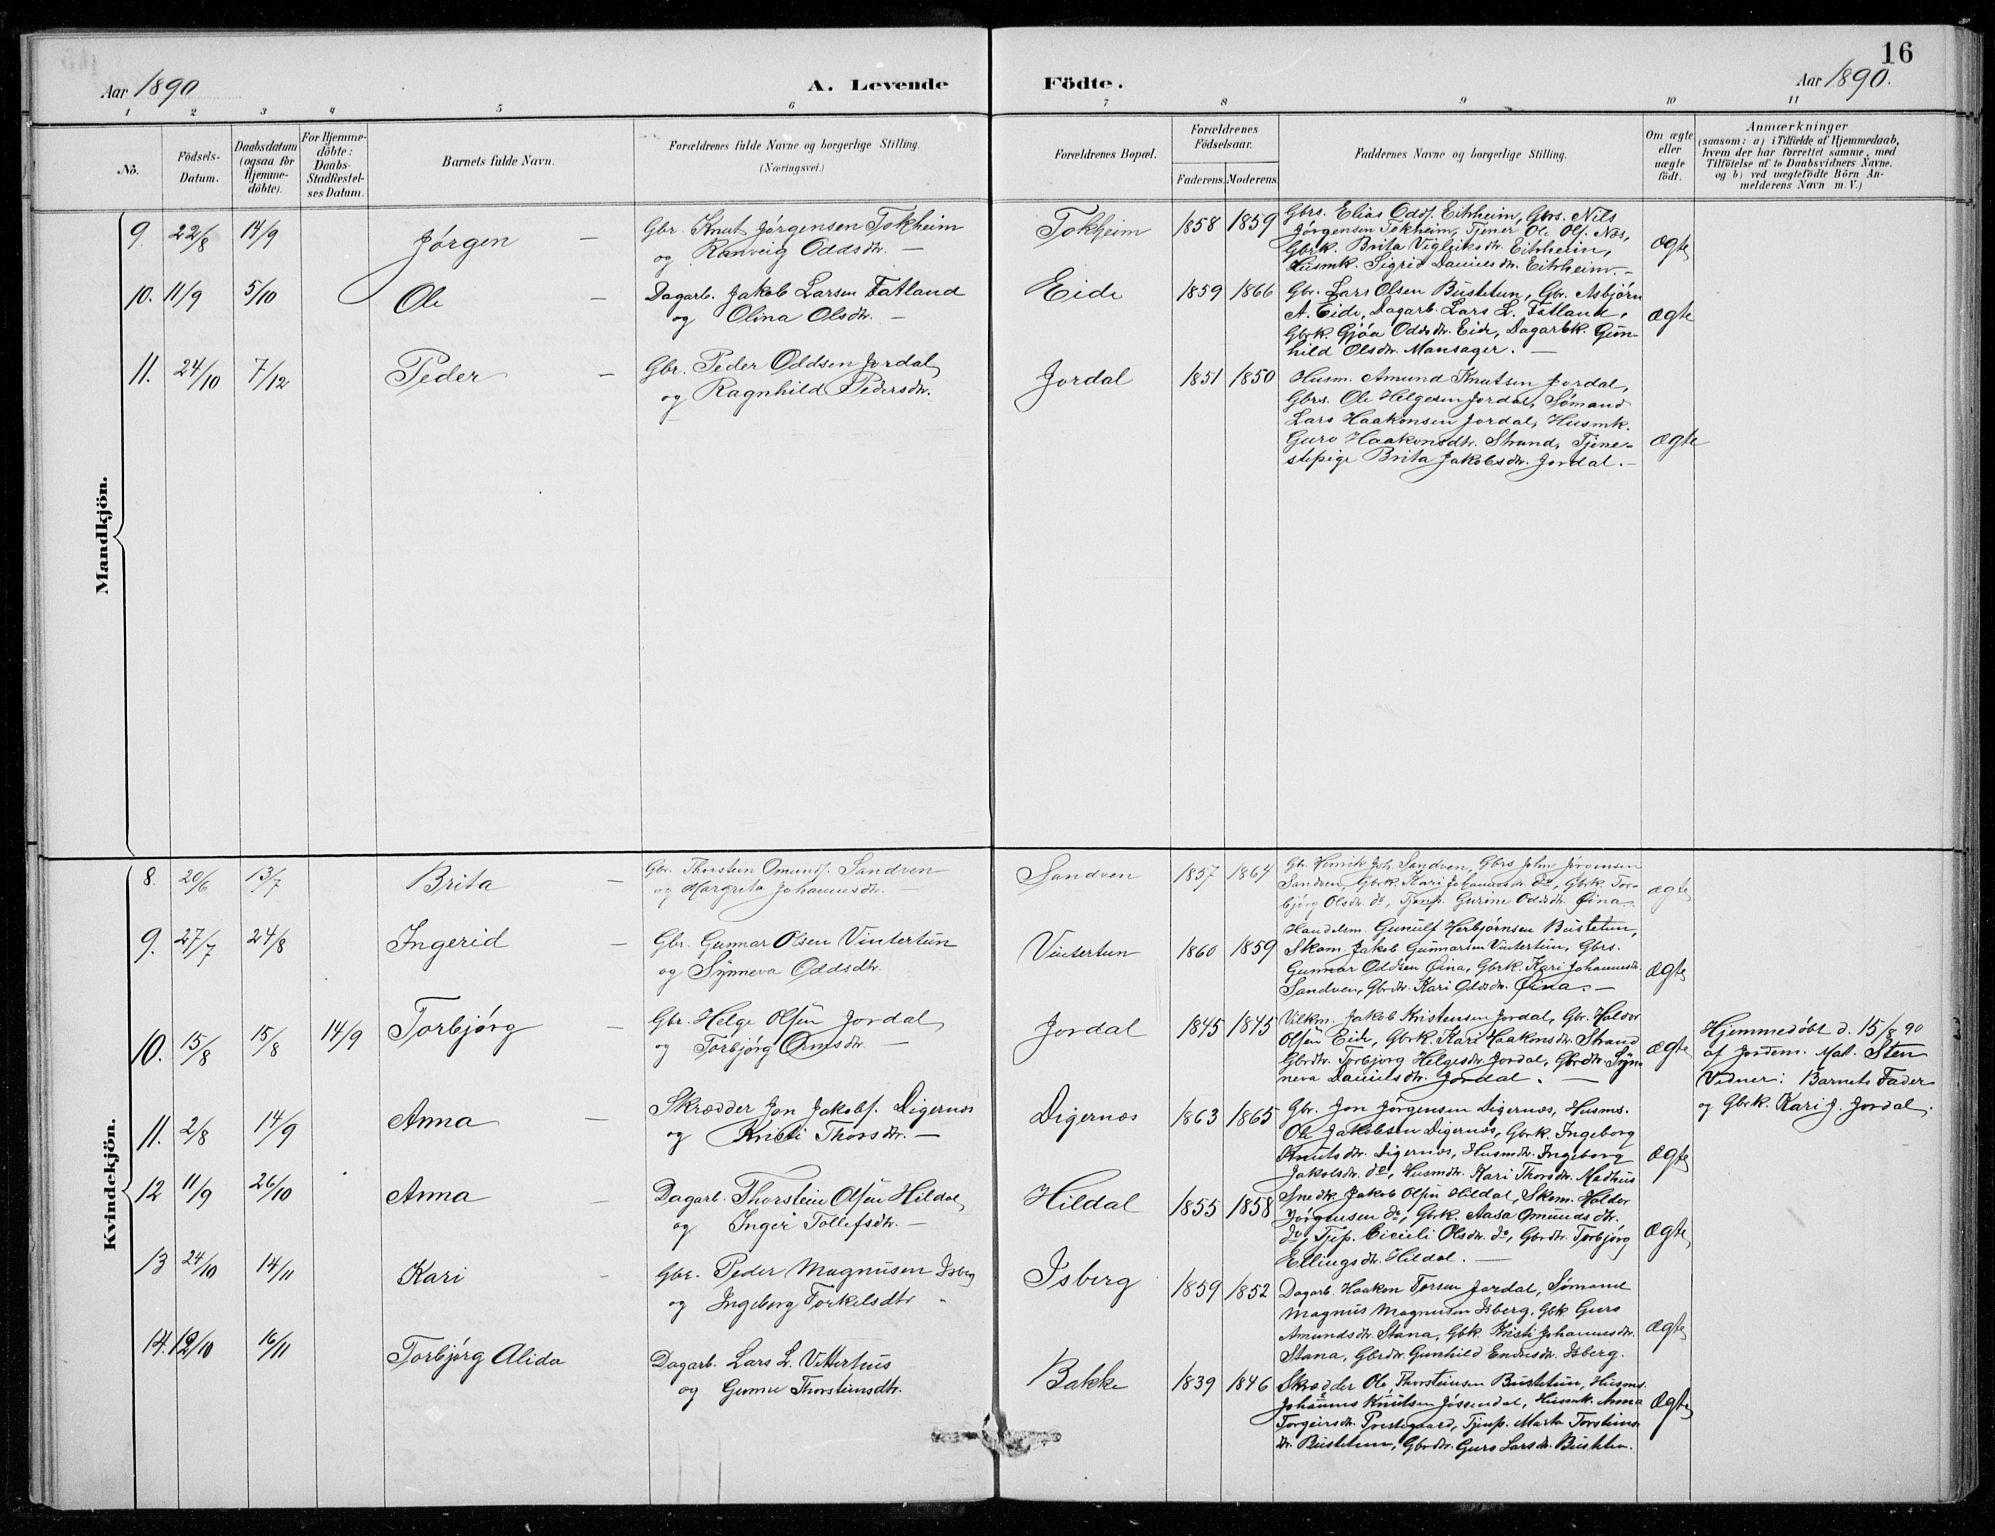 16
Aar 1890
A. Levende
Födte.
Aar 1890.
1 2 3 4 5 6 7 8 9 10 11
No.
Födsels-
Datum.
Daabsdatum
(ogsaa for
Hjemme-
döbte).
For Hjemme-
döbte:
Daabs-
Stadfæstel-
ses Datum.
Barnets fulde Navn.
Forældrenes fulde Navne og borgerlige Stilling.
(Næringsvei.)
Forældrenes Bopæl.
Forældrenes
Födselsaar.
Faderens. Moderens.
Faddernes Navne og borgerlige Stilling.
Om ægte
eller
uægte
födt.
Anmærkninger
(saasom: a) i Tilfælde af Hjemmedaab,
hvem der har forrettet samme, med
Tilföielse af to Daabsvidners Navne.
og b) ved uægtefödte Börn An-
melderens Navn m. V.)
Mandkjön.
9. 22/8 14/9 Jørgen —
Gbr. Knut Jørgensen Tokheim
og Ranveig Oddsdtr. —
Tokheim 1858 1859
Gbrs. Elias Odds. Eitrheim, Gbrs. Nils
Jørgensen Tokheim, Tjener Ole Ols. Næs,
Gbrk. Brita Vigleiksdtr. Eitrheim,
Husmk. Sigrid Danielsdtr. Eitrheim. —
ægte
10. 11/9 5/10 Ole —
Dagarb. Jakob Larsen Fatland
og Olina Olsdtr. —
Eide 1859 1866
Gbr. Lars Olsen Bustetun, Gbr. Asbjørn
A. Eide, Dagarb. Lars L. Fatland,
Gbrk. Gjøa Oddsdtr. Eide, Dagarbk. Gun-
hild Olsdtr. Mansager. —
ægte
11. 24/10 7/12 Peder —
Gbr. Peder Oddsen Jordal
og Ragnhild Pedersdtr.
Jordal 1851 1850
Husm. Amund Knutsen Jordal,
Gbrs. Ole Helgesen Jordal, Sømand
Lars Haakonsen Jordal, Husmk.
Guro Haakonsdtr. Strand, Tjene-
stepige Brita Jakobsdtr. Jordal. —
ægte
Kvindekjön.
8. 20/6 13/7 Brita —
Gbr. Thorstein Omunds. Sandven
og Margreta Johannesdtr.
Sandven 1857 1864
Gbr. Henrik Joh. Sandven, Gbrs John Jørgensen
Sandven, Gbrk. Kari Johannesdtr. do, Gbrk. Tor-
bjørg Olsdtr. do, Tjenp. Gurine Oddsdtr. Øina.
ægte
9. 27/7 24/8 Ingerid —
Gbr. Gunnar Olsen Vintertun
og Synneva Oddsdtr.
Vintertun 1860 1859
Handelsm. Gunulf Herbjørnsen Bustetun,
Skom. Jakob Gunnarsen Vintertun, Gbrs.
Gunnar Oddsen Øina, Gbrk. Kari Johannesdtr.
Sandven, Gbrdtr. Kari Oddsdtr. Øina. —
ægte
10. 15/8 15/8 14/9 Torbjørg —
Gbr. Helge Olsen Jordal
og Torbjørg Ormsdtr. —
Jordal 1845 1845
Vilkm. Jakob Kristensen Jordal, Gbr. Haldor
Olsen Eide, Gbrk. Kari Haakonsdtr. Strand
Gbrdtr. Torbjørg Helgesdtr. Jordal, Gbrdtr. Syn-
neva Danielsdtr. Jordal. —
ægte
Hjemmedøbt d. 15/8 90
af Jordem. Mat. Sten
Vidner: Barnets Fader
og Gbrk. Kari J. Jordal.
11. 2/8 14/9 Anna —
Skrædder Jon Jakobs. Digernæs
og Kristi Thorsdtr. —
Digernæs 1863 1865
Gbr. Jon Jørgensen Digernæs, Husms.
Ole Jakobsen Digernæs, Gbrk. Ingeborg
Knutsdtr. Digernæs, Husmdtr. Ingeborg
Jakobsdtr. do, Husmdtr. Kari Thorsdtr. Mædhus
ægte
12 11/9 26/10 Anna —
Dagarb. Thorstein Olsen Hildal
og Inger Tollefsdtr. —
Hildal 1855 1858
Snedk. Jakob Olsen Hildal, Skom. Haldor
Jørgensen do, Gbrk. Aasa Omundsdtr.
do, Tjep. Cicieli Olsdtr. do, Gbrdtr. Torbjørg
Ellingsdtr. Hildal. —
ægte
13 24/10 14/11 Kari -
Gbr. Peder Magnusen Isberg
og Ingeborg Torkelsdtr
Isberg 1859 1852
Dagarb. Haakon Torsen Jordal, Sømand
Magnus Magnusen Isberg, Gbk Guro
Amundsdtr. Stana, Gbk. Kristi Johannesdtr.
Stana, Gbrdtr. Gunhild Endresdtr. Isberg.
ægte
14. 12/10 16/11 Torbjørg Alida
Dagarb. Lars L. Vitterhus
og Gunne Thorsteinsdtr.
Bakke 1839 1846
Skrædder Ole Thorsteinsen Bustetun, Husms.
Johannes Knutsen Jøsendal, Husmk. Anna
Torgeirsdtr. Prestegaard, Tjenp. Marta Torsteins-
dtr. Bustetun, Gbrdtr. Guro Larsdtr. Bustetun.
ægte